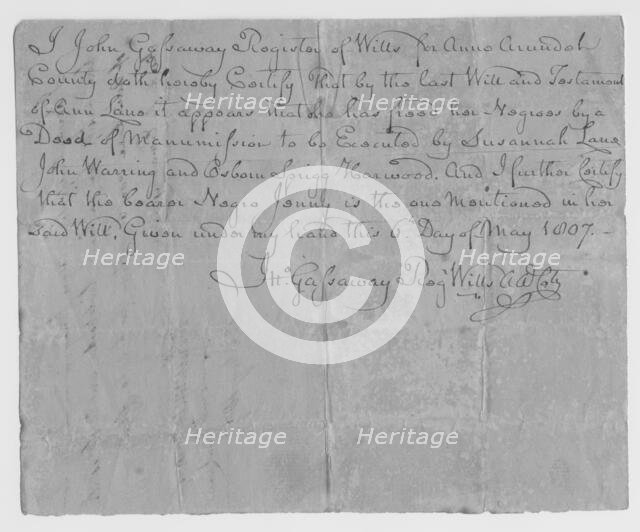 I John Gassaway Register of Wills for Anno Arundel
County doth hereby Certify that by the last Will and Testament
of Ann Lane it appears that she has freed her Negroes by a
Deed of Manumission to be Executed by Susannah Lane
John Warring and Osborn Sprigg Harwood. And I further Certify
that the bearer Negro Jenny is the one Mentioned in her
said Will. Given under my hand this 6th Day of May 1807.
Jno. Gassaway Regr Wills A A Coty
Heritage Heritage
Heritage Heritage
Heritage Heritage
C